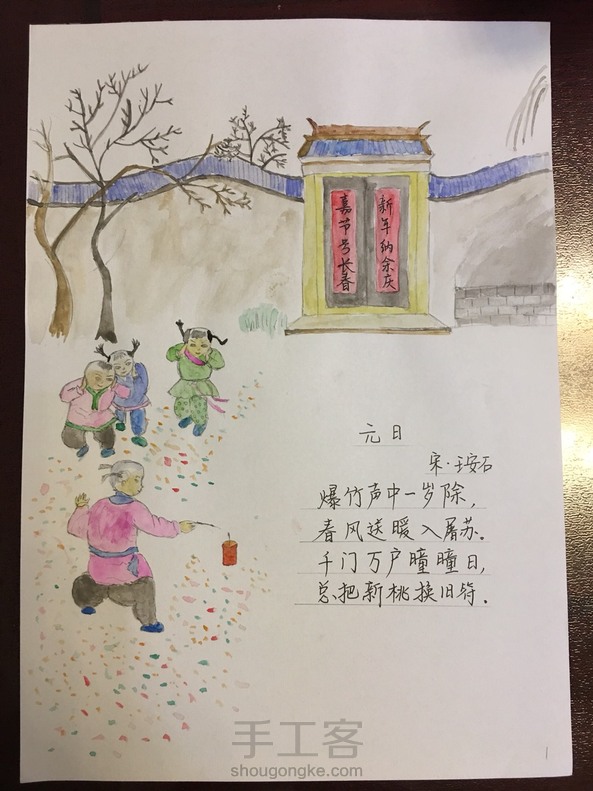 新年纳余庆
嘉节号长春
元日
宋·王安石
爆竹声中一岁除，
春风送暖入屠苏。
千门万户曈曈日，
总把新桃换旧符。
1
手工客
shougongke.com